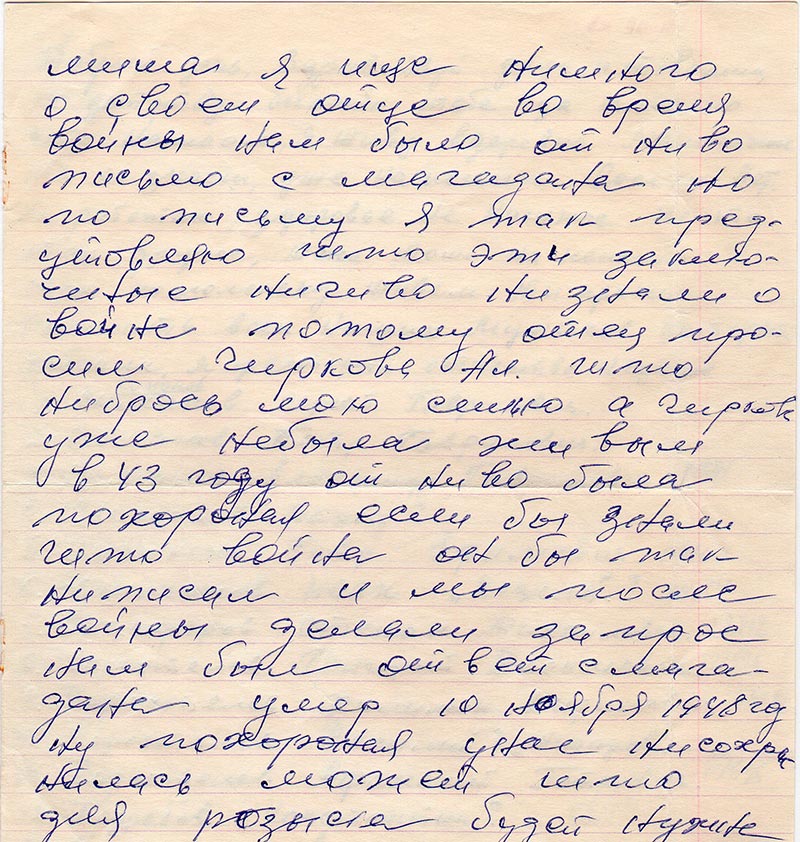 миша я ище нимного
о своем отце во время
войны нам было от ниво
письмо с магадана но
по письму я так пред-
установляю што эти заклю-
ченые ничиво низнали о
войне потому отец про-
сил Чиркова Ал. што
нибрось мою семью а Чирков
уже небыла живым
в 43 году от ниво была
похороная если бы знали
што война он бы так
ниписал и мы после
войны делали запрос
нам был ответ с мага-
дана умер 10 ноября 1948 год
ну похороная унас нисохра
нилась может што
для розыска будет нужна